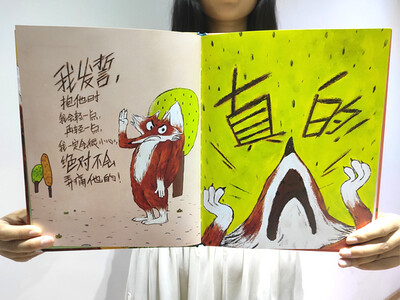 我发誓，
抱他时
我会轻一点，
再轻一点，
我一定会很小心，
绝对不会
弄痛他的！
真的